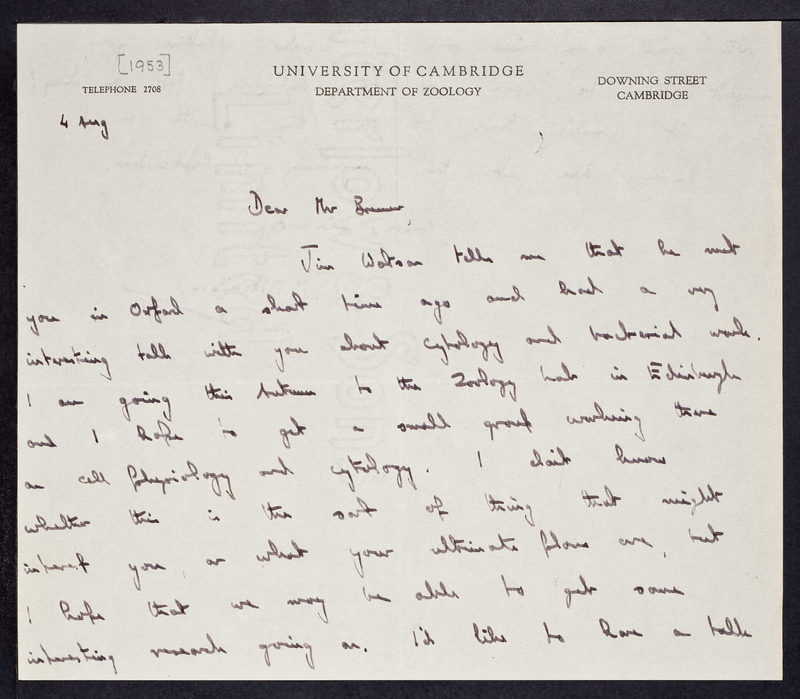 [1953]
UNIVERSITY OF CAMBRIDGE
DEPARTMENT OF ZOOLOGY
TELEPHONE 2708
DOWNING STREET
CAMBRIDGE
4 Aug
Dear Mr Brenner,
Jim Watson tells me that he met
you in Oxford a short time ago and had a very
interesting talk with you about cytology and bacterial work.
I am going this autumn to the Zoology Lab in Edinburgh
and I hope to get a small group working there
on cell physiology and cytology. I don't know
whether this is the sort of thing that might
interest you, or what your ultimate plans are, but
I hope that we may be able to get some
interesting research going on. I'd like to have a talk